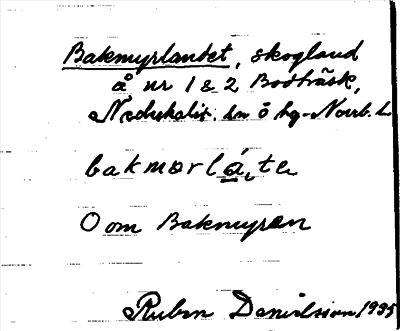 Bakmyrlandet, skogland
å nr 1 & 2 Bodträsk,
Nederkalix. sn ö hg. Norrb. L
bakmørlá̱,te
O om Bakmyran
Ruben Danielsson 1935